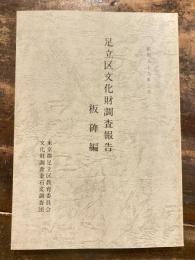 足立区文化財調査報告
板碑編
東京都足立区教育委員会
文化財調査委員会調査団